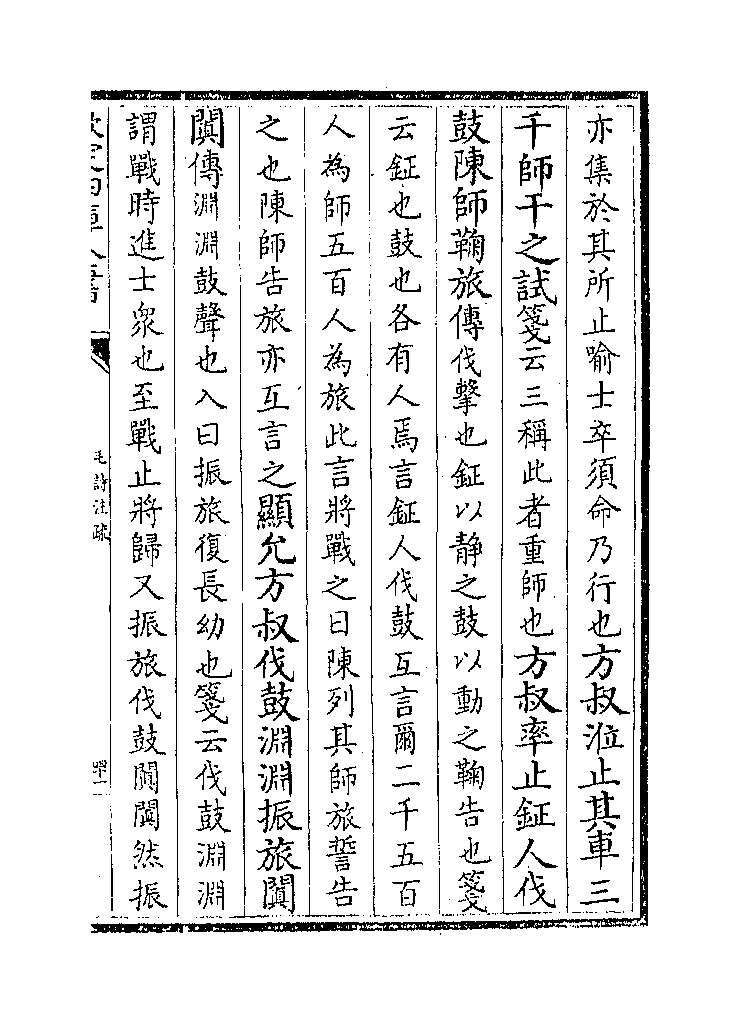 亦集於其所止喻士卒須命乃行也方叔涖止其車三
千師干之試箋云三稱此者重師也方叔率止鉦人伐
鼓陳師鞠旅傳伐擊也鉦以静之鼓以動之鞠告也箋
云鉦也鼓也各有人焉言鉦人伐鼓互言爾二千五百
人為師五百人為旅此言將戰之日陳列其師旅誓告
之也陳師告旅亦互言之顯允方叔伐鼓淵淵振旅闐
闐傳淵淵鼓聲也入曰振旅復長幼也箋云伐鼓淵淵
謂戰時進士衆也至戰止將歸又振旅伐鼓闐闐然振
毛詩注疏